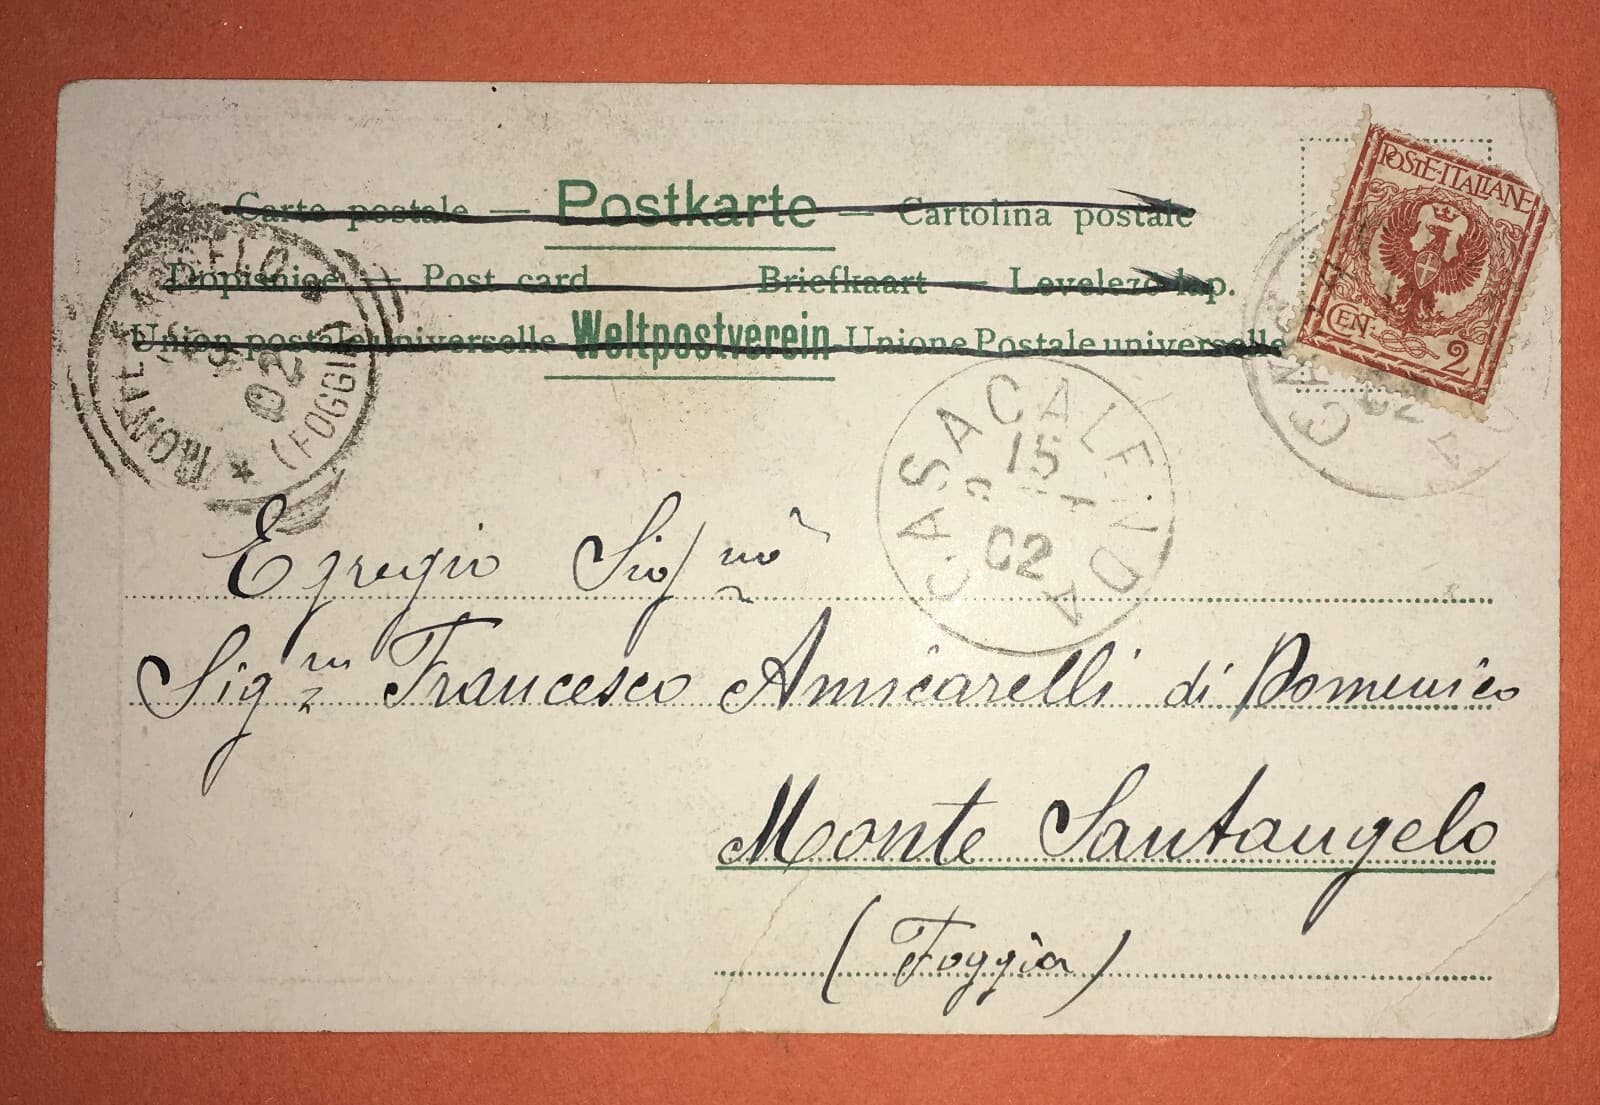 Carte postale — Postkarte — Cartolina postale
Dopisnice — Post card Briefkaart — Levelező-lap.
Union postale universelle Weltpostverein Unione Postale universelle
POSTE·ITALIANE
CEN: 2
MONTE S. ANGELO
02
(FOGGIA)
CASACALENDA
15
02
02
Egregio Sig/no
Sig.r Francesco Annicarelli di Domenico
Monte Santangelo
(Foggia)